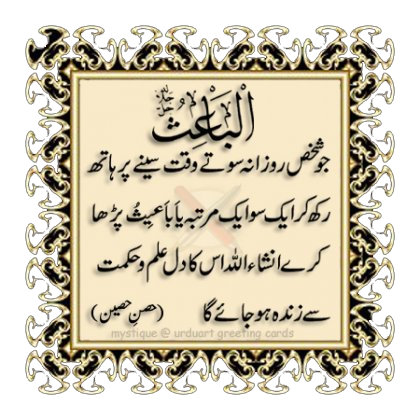 الْبَاعِثُ جل جلالہ
جو شخص روزانہ سوتے وقت سینے پر ہاتھ
رکھ کر ایک سو ایک مرتبہ یَا بَاعِثُ پڑھا
کرے انشاء اللہ اس کا دل علم و حکمت
سے زندہ ہو جائے گا (حصن حصین)
mystique @ urduart greeting cards